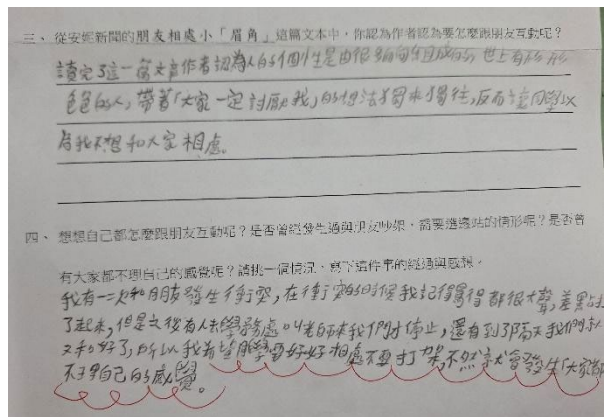 三、從安妮新聞的朋友相處小「眉角」這篇文本中，你認為作者認為要怎麼跟朋友互動呢？
讀完了這一篇文章作者認為人的個性是由很多面向組成的 世上有形形
色色的人，帶著「大家一定討厭我」的想法獨來獨往，反而讓同學以
為我不想和大家相處。
四、想想自己都怎麼跟朋友互動呢？是否曾經發生過與朋友吵架、需要選邊站的情形呢？是否曾
有大家都不理自己的感覺呢？請挑一個情況，寫下這件事的經過與感想。
我有一次和朋友發生衝突，在衝突的時候我記得罵得都很大聲，差點打
了起來，但是之後有人去學務處叫老師來我們才停止，還有到了隔天我們
又和好了，所以我希望同學要好好相處不要打架，不然就會發生「大家都
不理自己的感覺。